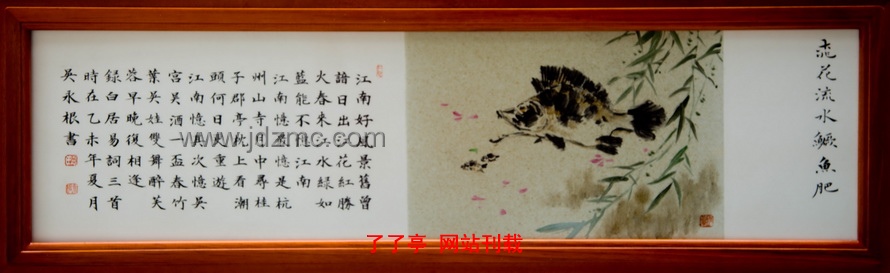 流花流水鱖魚肥
江南好風景舊曾
諳日出江花紅勝
火春來江水綠如
藍能不憶江南
江南憶最憶是杭
州山寺月中尋桂
子郡亭枕上看潮
頭何日更重遊
江南憶其次憶吳
宮吳酒一盃春竹
葉吳娃雙舞醉芙
蓉早晚復相逢
錄白居易詞三首
時在乙未年夏月
吳永根書
www.jdlzmc.com
了了亭 网站刊载